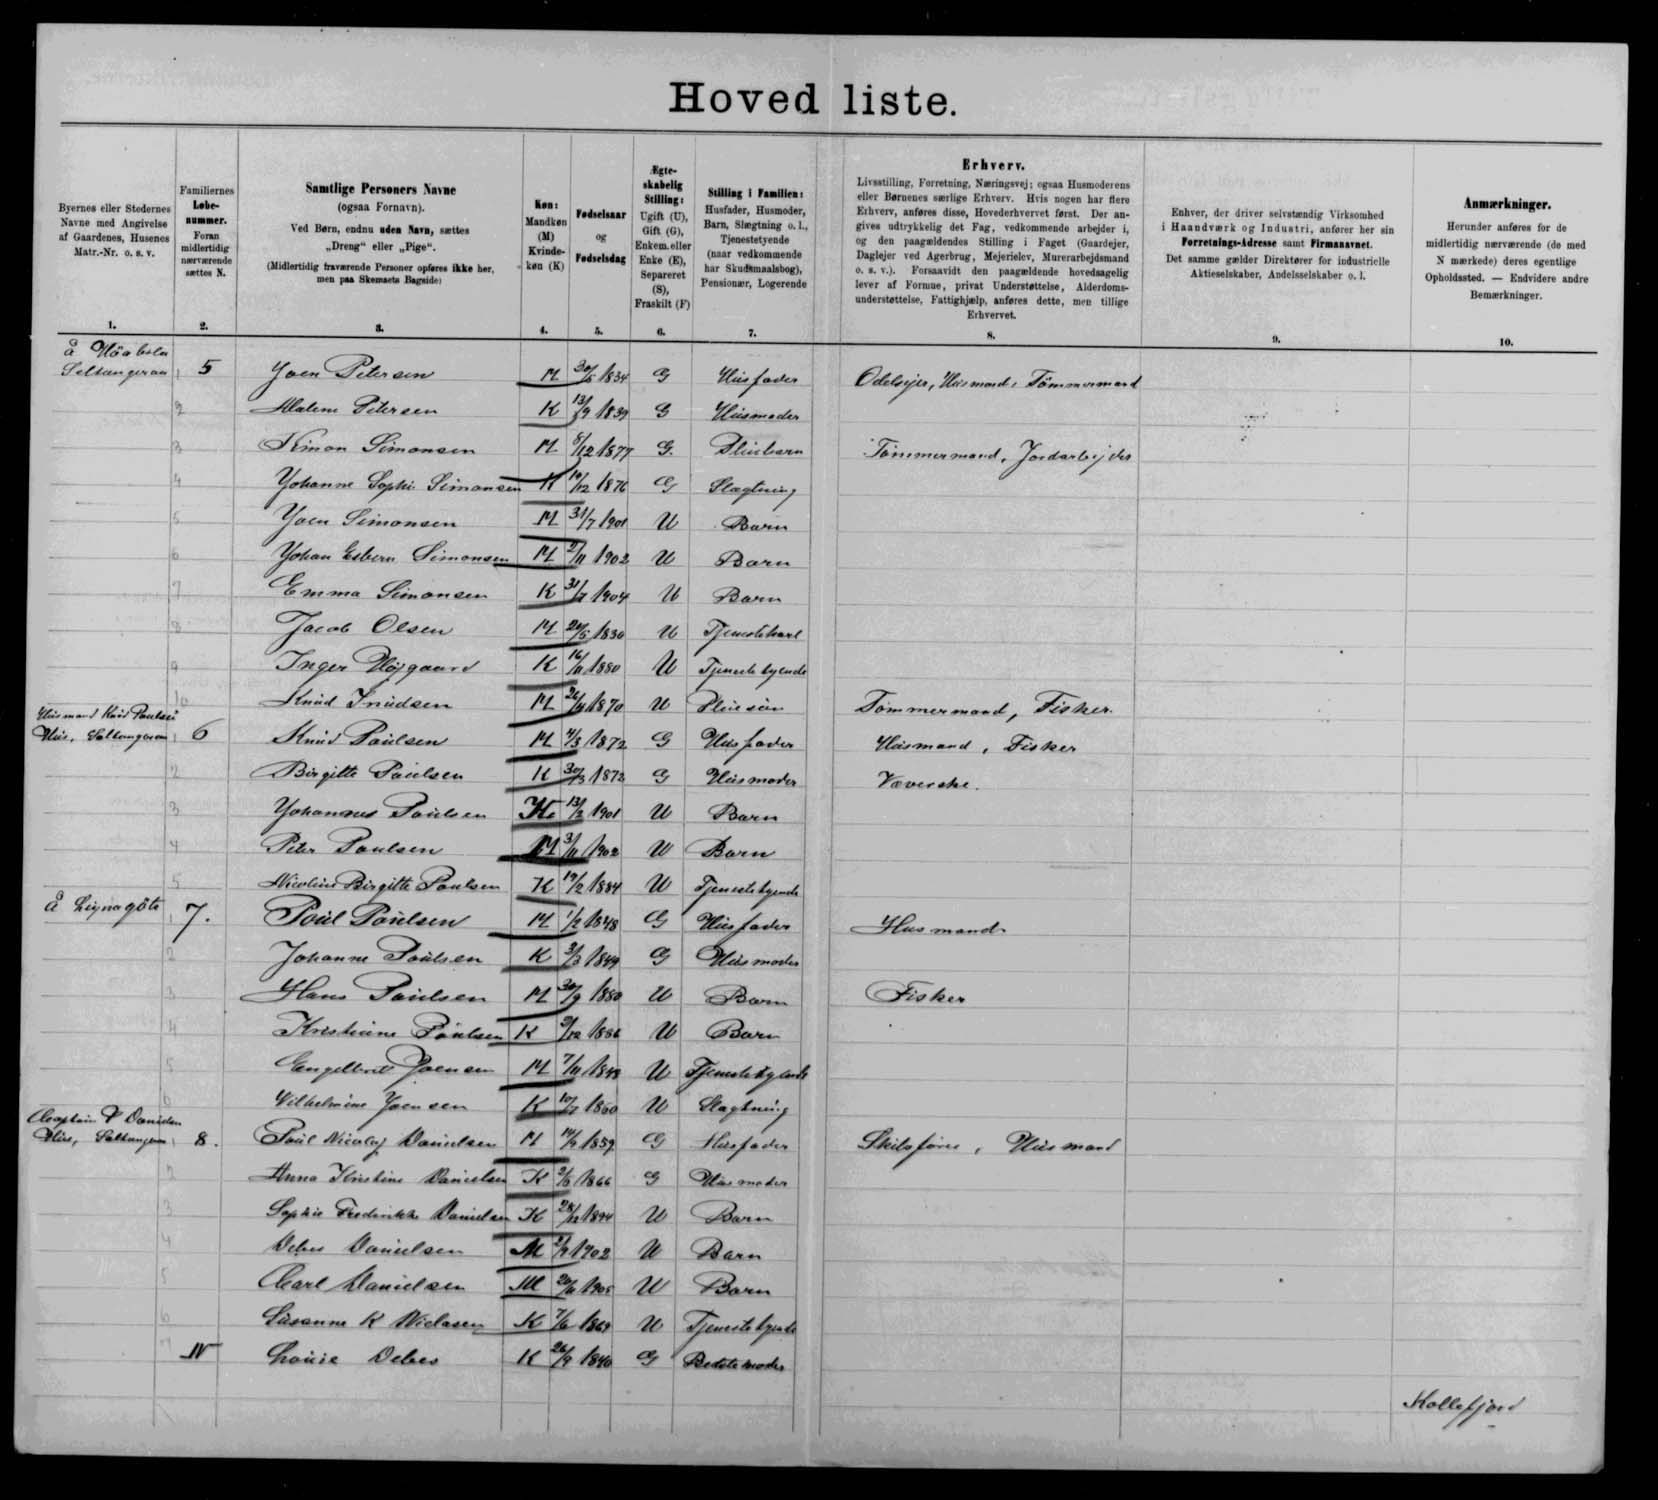 Hovedliste.
Byernes eller Stedernes
Navne med Angivelse
af Gaardenes, Husenes
Matr.-Nr. o. s. v.
1.
Familiernes
Løbe-
nummer.
Foran
midlertidig
nærværende
sættes N.
2.
Samtlige Personers Navne
(ogsaa Fornavn).
Ved Børn, endnu uden Navn, sættes
„Dreng“ eller „Pige“.
(Midlertidig fraværende Personer opføres ikke her,
men paa Skemaets Bagside)
3.
Køn:
Mandkøn
(M)
Kvinde-
køn (K)
4.
Fødselsaar
og
Fødselsdag
5.
Ægte-
skabelig
Stilling:
Ugift (U),
Gift (G),
Enkem. eller
Enke (E),
Separeret
(S),
Fraskilt (F)
6.
Stilling i Familien:
Husfader, Husmoder,
Barn, Slægtning o. l.,
Tjenestetyende
(naar vedkommende
har Skudsmaalsbog),
Pensionær, Logerende
7.
Erhverv.
Livsstilling, Forretning, Næringsvej; ogsaa Husmoderens
eller Børnenes særlige Erhverv. Hvis nogen har flere
Erhverv, anføres disse, Hovederhvervet først. Der an-
gives udtrykkelig det Fag, vedkommende arbejder i,
og den paagældendes Stilling i Faget (Gaardejer,
Daglejer ved Agerbrug, Mejerielev, Murerarbejdsmand
o. s. v.). Forsaavidt den paagældende hovedsagelig
lever af Formue, privat Understøttelse, Alderdoms-
understøttelse, Fattighjælp, anføres dette, men tillige
Erhvervet.
8.
Enhver, der driver selvstændig Virksomhed
i Haandværk og Industri, anfører her sin
Forretnings-Adresse samt Firmanavnet.
Det samme gælder Direktører for industrielle
Aktieselskaber, Andelsselskaber o. l.
9.
Anmærkninger.
Herunder anføres for de
midlertidig nærværende (de med
N mærkede) deres egentlige
Opholdssted. — Endvidere andre
Bemærkninger.
10.
å
1 5 Joen Petersen M 1834 G Husfader Odelsejer, Husmand, Tömmermand
2 Malene Petersen K 13/9 1839 G Husmoder
3 Simon Simonsen M 8/12 1877 G. Tömmermand, Jordarbejder
4 Johanne Sophie Simonsen K 19/12 1876 G Slægtning
5 Joen Simonsen M 31/7 1901 U Barn
6 Johan Esbern Simonsen M 2/11 1902 U Barn
7 Emma Simonsen K 1904 U Barn
8 Jacob Olsen M 1830 U Tjenestekarl
9 Inger Højgaard K 1880 U Tjenestetyende
10 Knud Knudsen M 1870 U Pleiesön Tömmermand, Fisker.
Husmand Knud Poulsens
Hus, 1 6 Knud Poulsen M 1872 G Husfader Husmand, Fisker
2 Birgitte Poulsen K 30/3 1872 G Husmoder Væverske.
3 Johannes Poulsen 13/2 1901 U Barn
4 Peter Poulsen M 3/11 1902 U Barn
5 Nicoline Birgitte Poulsen K 19/2 1884 U Tjenestetyende
å 1 7. Poul Poulsen M 1/2 1848 G Husfader Husmand
2 Johanne Poulsen K 3/3 1849 G Husmoder
3 Hans Poulsen M 30/9 1880 U Barn Fisker
4 Kristiane Poulsen K 1886 U Barn
5 Joensen M 7/11 1848 U Tjenestetyende
6 Vilhelmine Joensen K 1860 U Slægtning
Captain P Danielsen
Hus, 1 8. Poul Nicolaj Danielsen M 1859 G Husfader Skibsförer, Husmand
2 Anna Kristine Danielsen K 1866 G Husmoder
3 Sophie Frederikke Danielsen K 28/12 1894 U Barn
4 Debes Danielsen M 1902 U Barn
5 Carl Danielsen M U Barn
6 Susanne K Niclasen K 7/6 1869 U Tjenestetyende
7 N Louise Debes K 26/9 1840 G Bedstemoder
Kollefjord